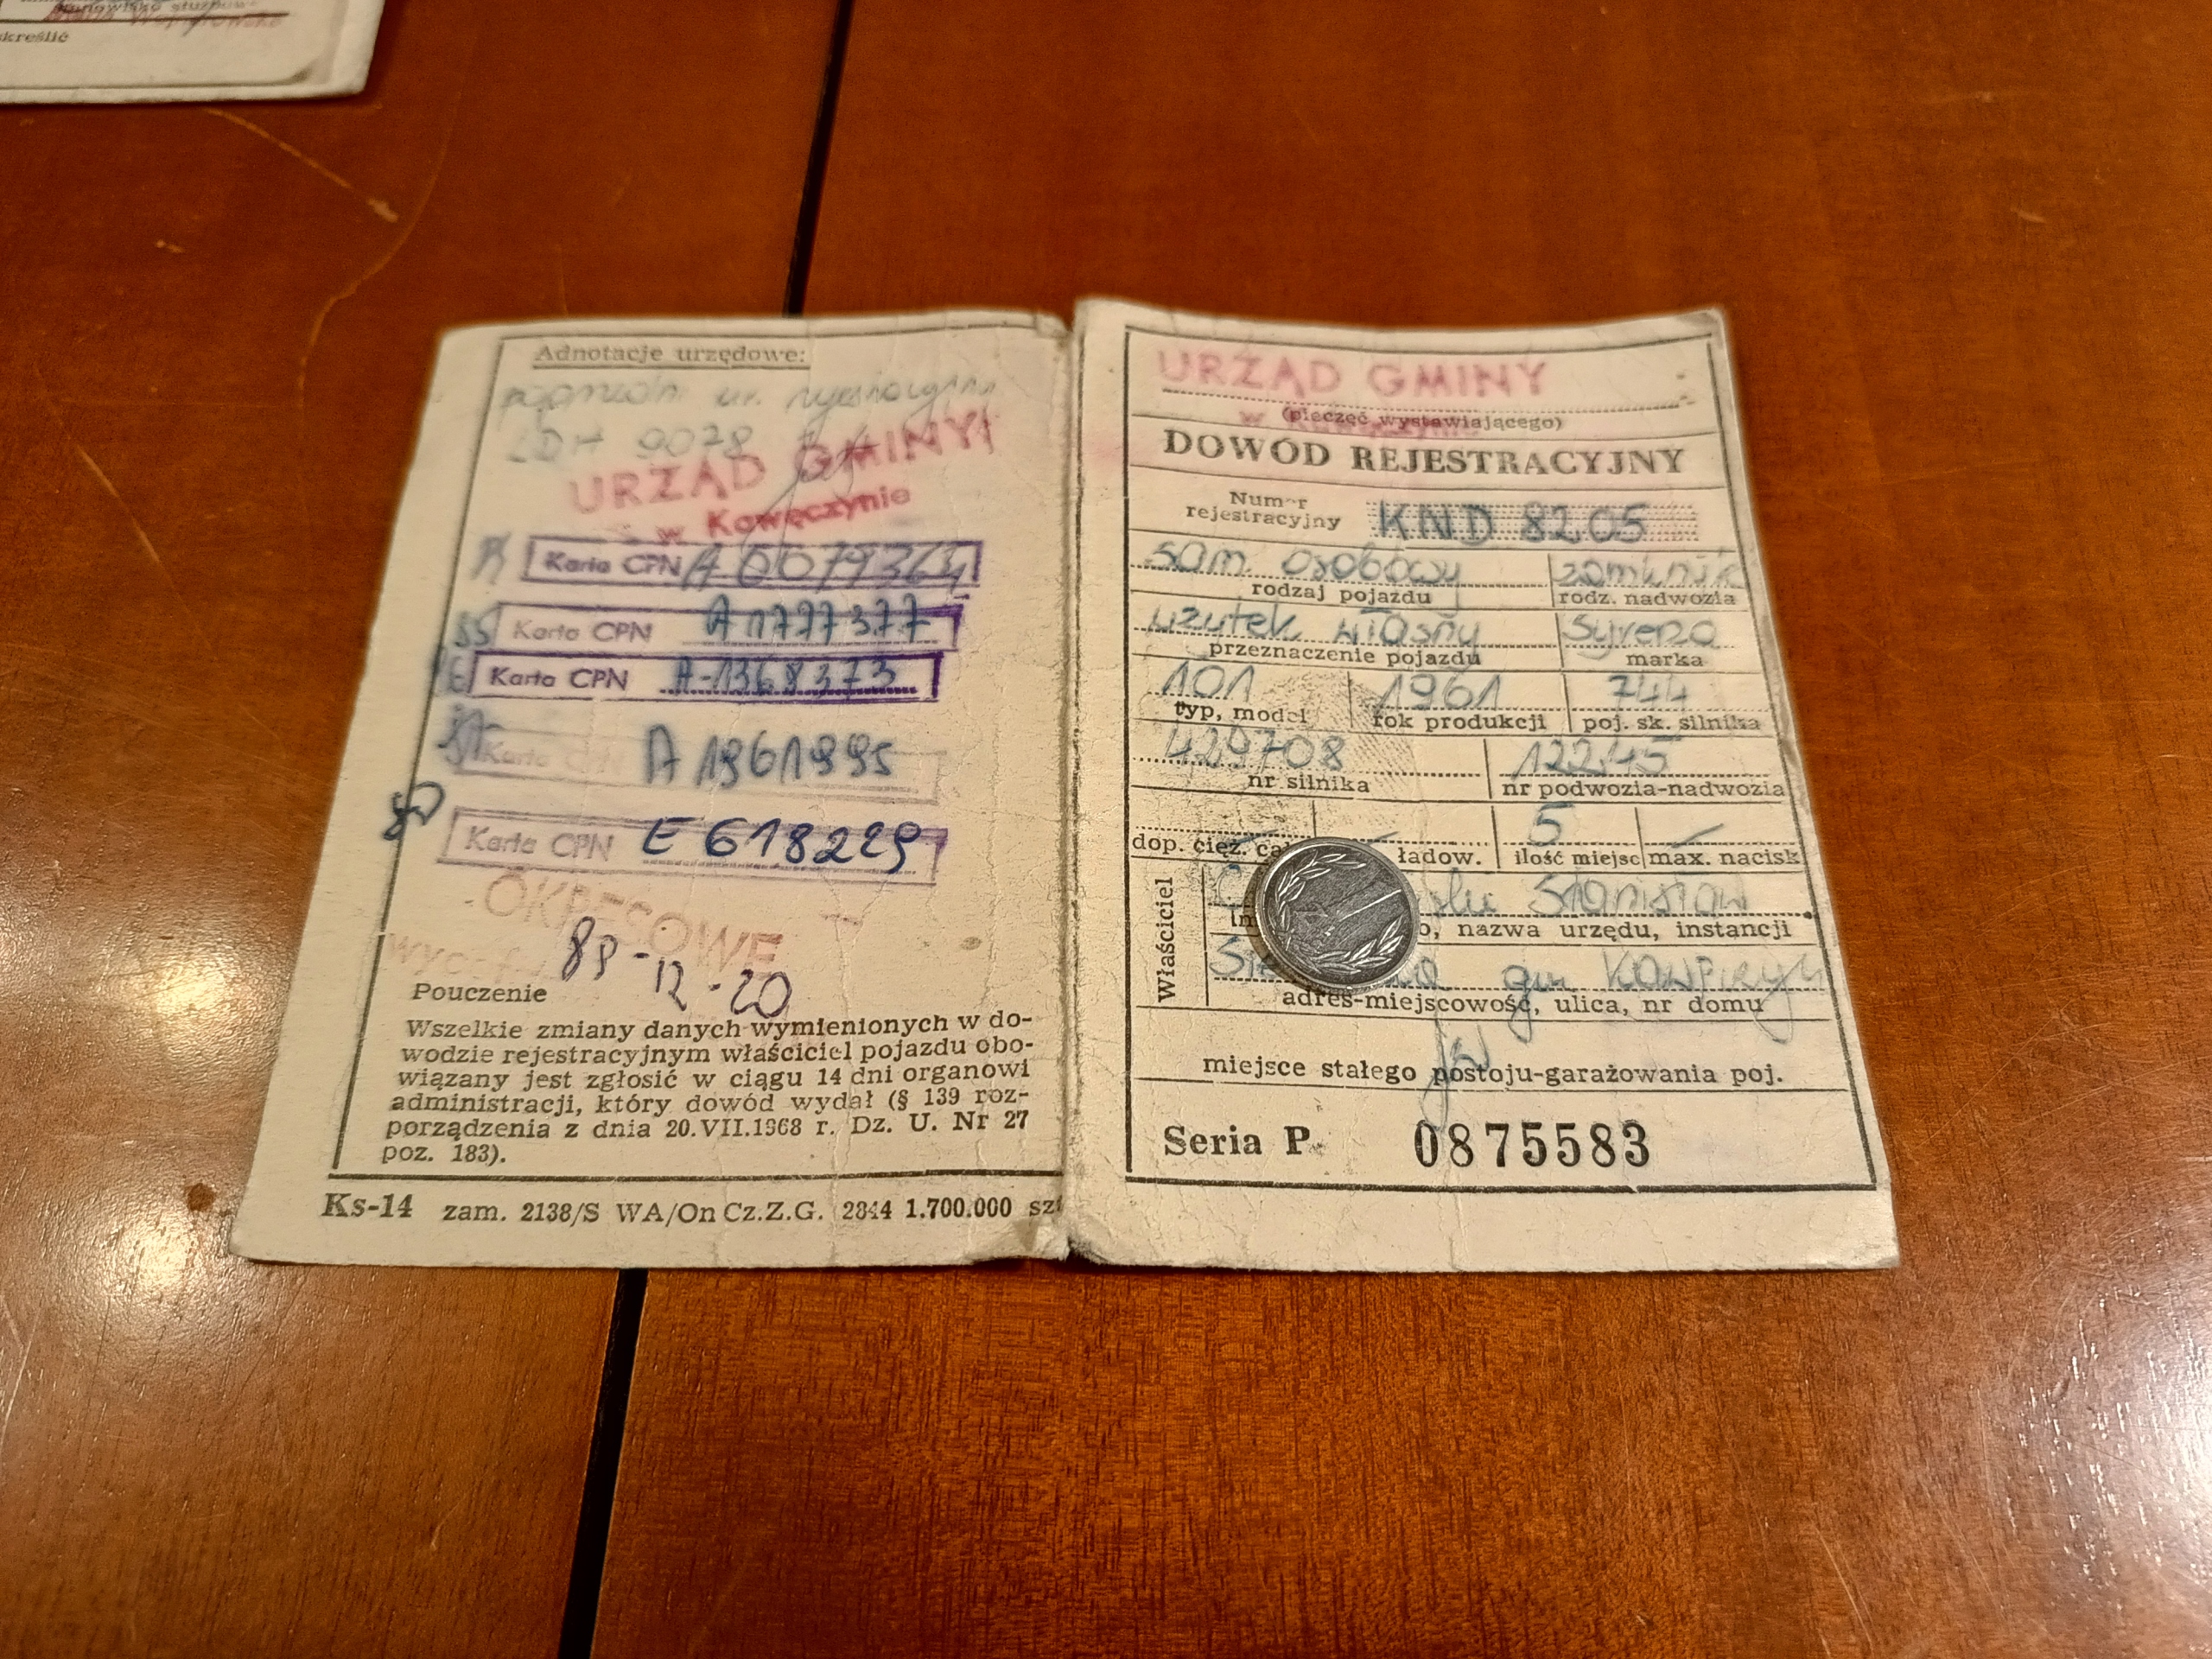 kreślić
Adnotacje urzędowe:
LDH 9078
URZĄD GMINY
w Kawęczynie
Karta CPN A 0079364
Karta CPN A 1777377
Karta CPN A-1368373
Karta CPN A 1961995
Karta CPN E 618229
OKRESOWE
89-12-20
Pouczenie
Wszelkie zmiany danych wymienionych w do-
wodzie rejestracyjnym właściciel pojazdu obo-
wiązany jest zgłosić w ciągu 14 dni organowi
administracji, który dowód wydał (§ 139 roz-
porządzenia z dnia 20.VII.1968 r. Dz. U. Nr 27
poz. 183).
Ks-14 zam. 2138/S WA/On Cz.Z.G. 2844 1.700.000 szt
URZĄD GMINY
(pieczęć wystawiającego)
DOWÓD REJESTRACYJNY
Numer
rejestracyjny KND 8205
sam. osobowy zamknię
rodzaj pojazdu rodz. nadwozia
użytek własny Syrena
przeznaczenie pojazdu marka
101 1961 744
typ, model rok produkcji poj. sk. silnika
429708 12245
nr silnika nr podwozia-nadwozia
5
dop. cięż. ładow. ilość miejsc max. nacisk
Właściciel
Stanisław
nazwa urzędu, instancji
gm
adres-miejscowość, ulica, nr domu
miejsce stałego postoju-garażowania poj.
Seria P 0875583